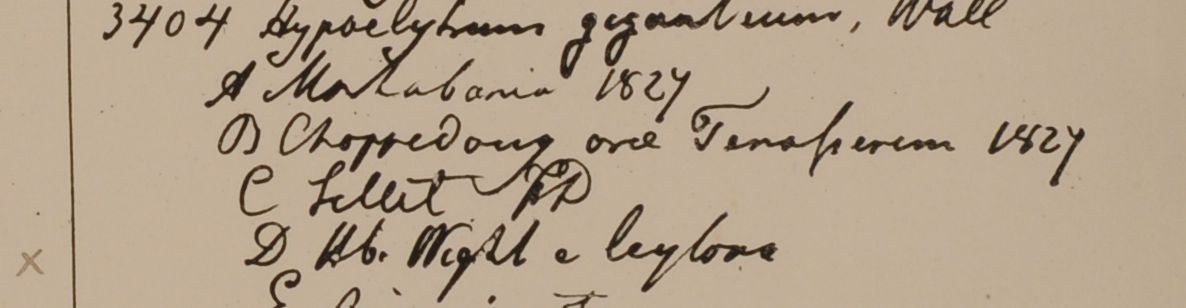 3404 Hypoelytrum giganteum, Wall
A Martabania 1827
B Choppedong oræ Tenasserem 1827
C Sillet FD
D Hb. Wight e Ceylona
E